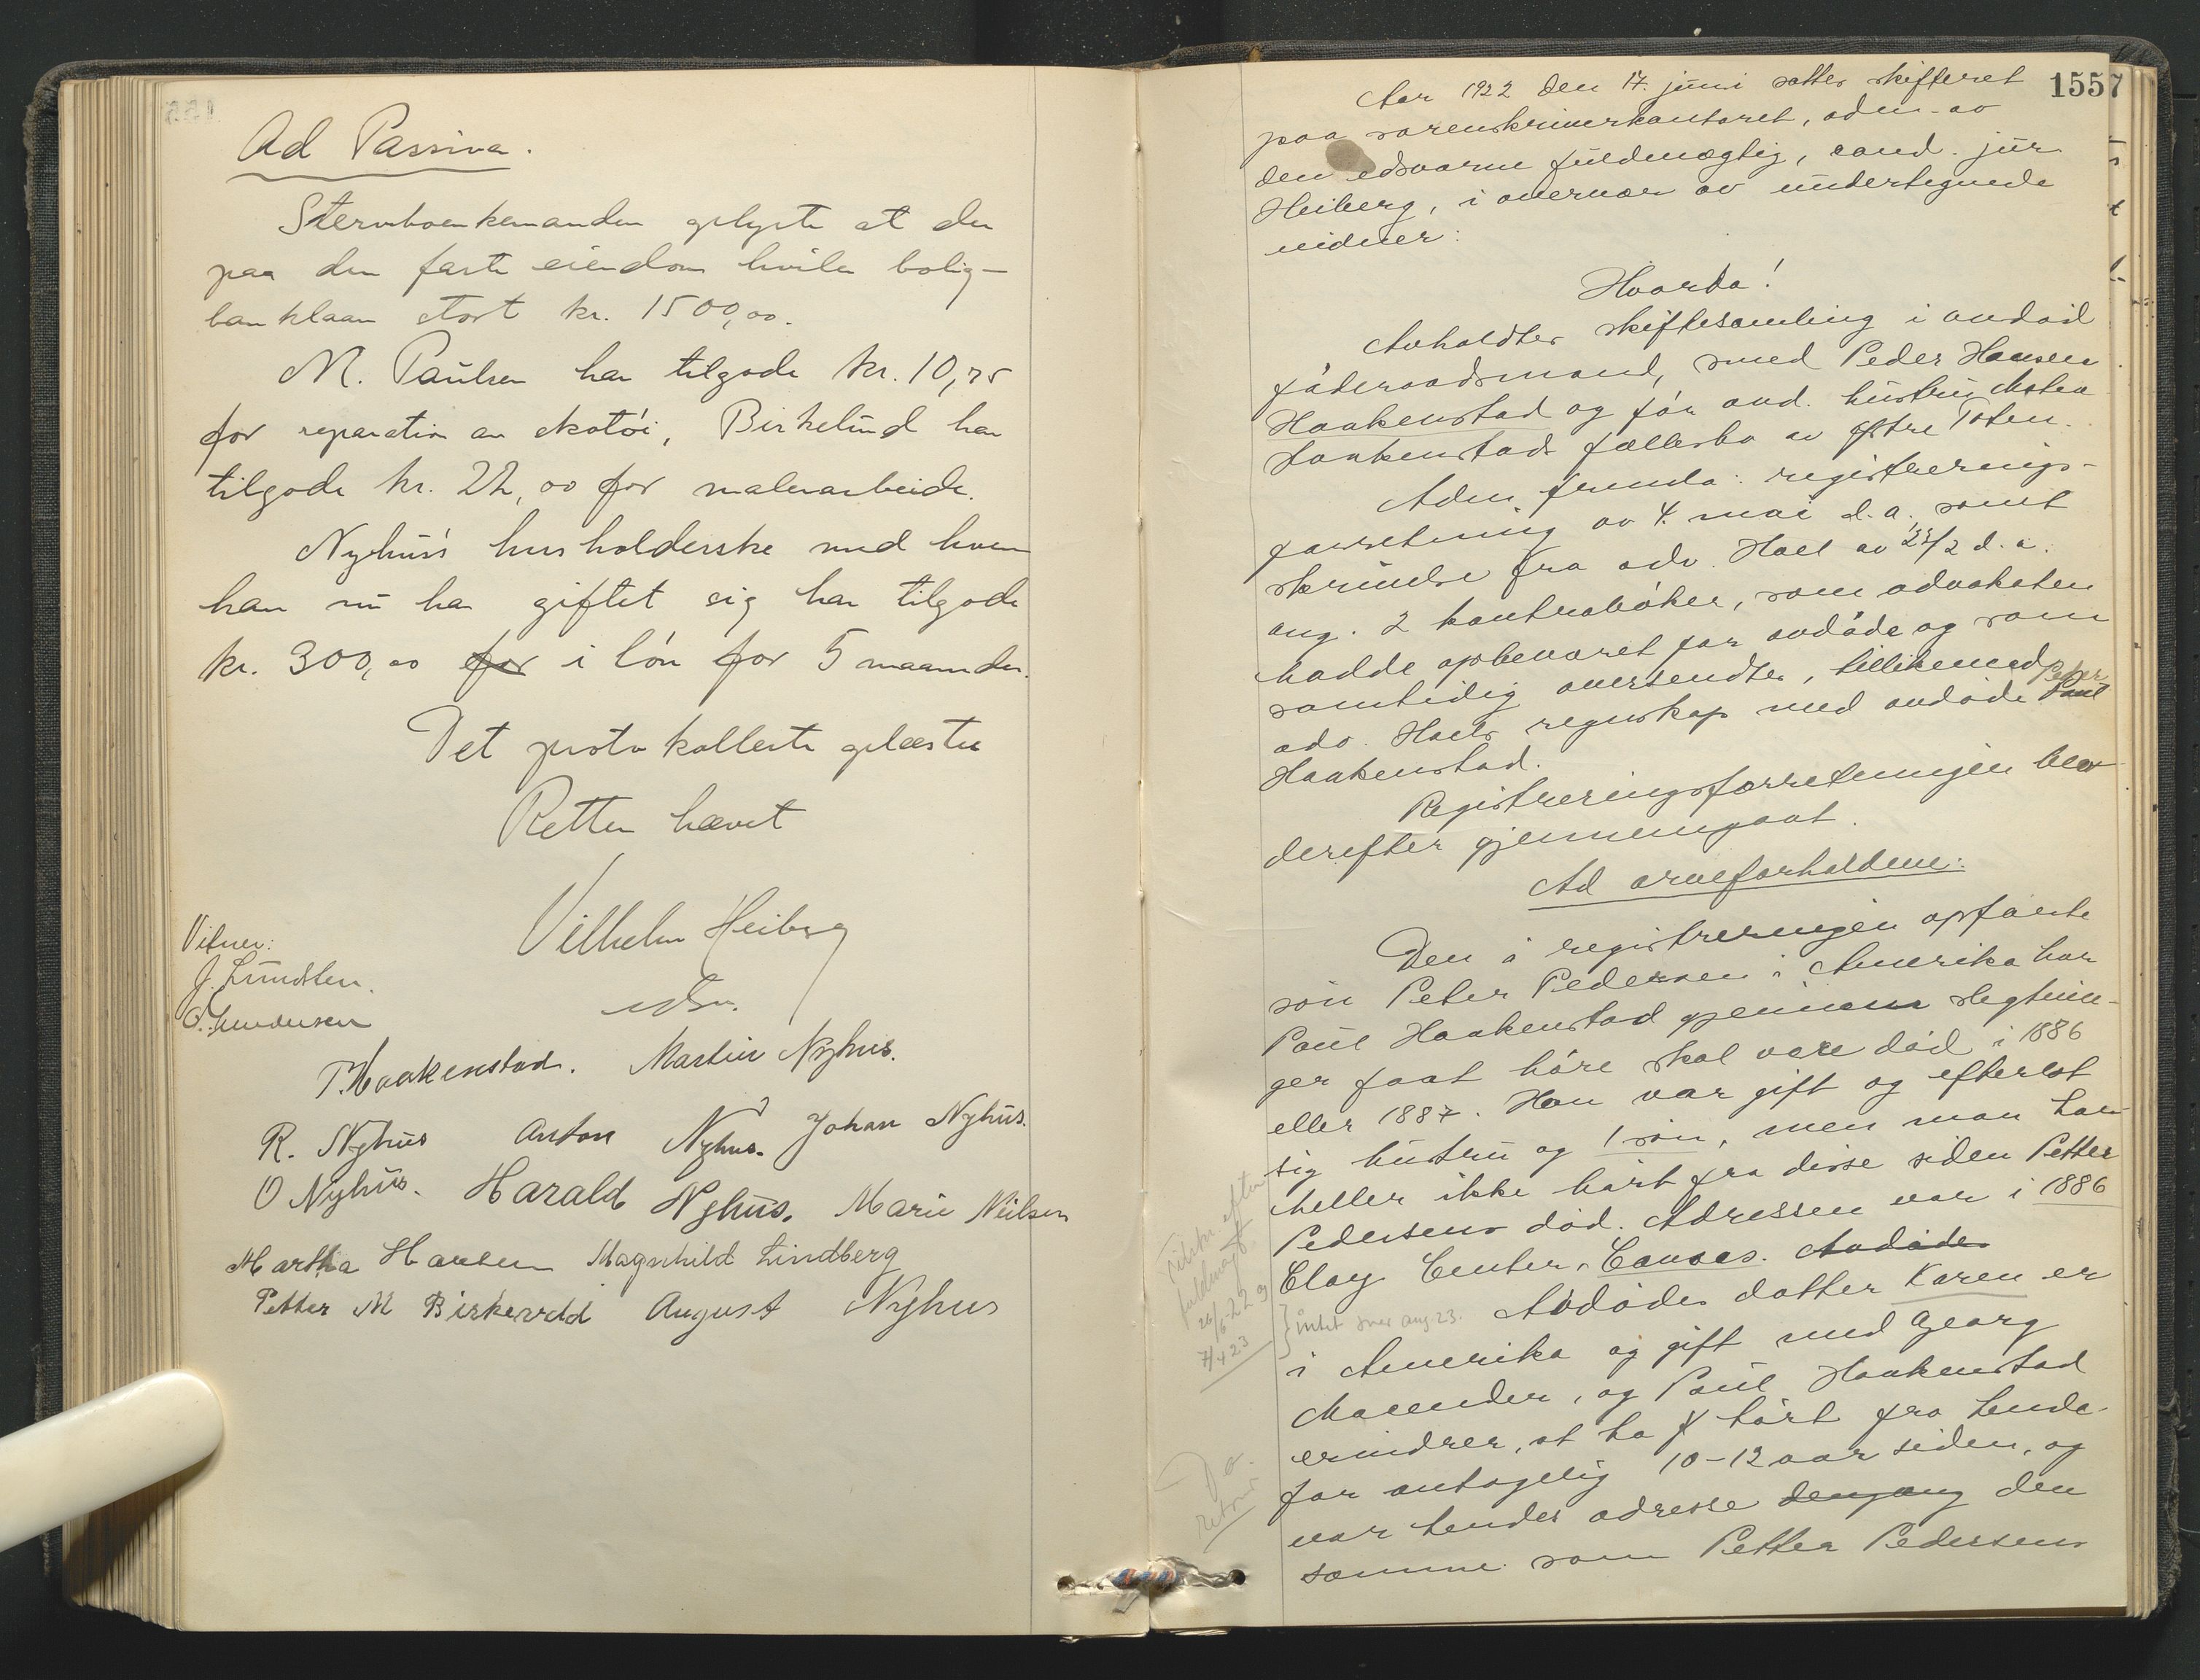 Ad Passiva.
Stervboenkemanden oplyste at der
paa den faste eiendom hviler bolig-
banklaan stort kr. 1500,00.
M. Paulsen har tilgode kr. 10,75
for reparation av skotøi, Birkelund har
tilgode kr. 22,00 for malerarbeide.
Nyhus's husholderske med hvem
han nu har giftet sig har tilgode
kr. 300,00 for i løn for 5 maaneder.
Det protokollerte oplæstes
Retten hævet
Vilhelm Heiberg
edsv.
Vitner:
J. Lundsten.
O. Gundersen
P. Haakenstad. Martin Nyhus.
R. Nyhus Anton Nyhus. Johan Nyhus.
O Nyhus. Harald Nyhus. Marie Nilsen
Martha Hansen Magnhild Lindberg
Petter M Birkevold August Nyhus
1557
Aar 1922 den 17. juni sattes skifteret
paa sorenskriverkontoret, adm. av
den edsvorne fuldmægtig, cand. jur
Heiberg, i overvær av undertegnede
vidner:
Hvorda!
Avholdtes skiftesamling i avdød
føderaadsmand, smed Peder Hansen
Haakenstad og før avd. hustru Mathea
Haakenstads fællesbo av østre Toten.
Adm. fremla: registrerings-
forretning av 4. mai d.a. samt
skrivelse fra adv. Hoel av 23/2 d.a.
ang. 2 kontrabøker, som advokaten
hadde opbevaret for avdøde og som
samtidig oversendtes, tillikemed
adv. Hoels regnskap med avdøde Paul Peder
Haakenstad.
Registreringsforretningen blev
derefter gjennemgaat.
Ad arveforholdene:
Den i registreringen opførte
søn Peter Pedersen i Amerika har
Paul Haakenstad gjennem slegtnin-
ger faat høre skal være død i 1886
eller 1887. Han var gift og efterlot
sig hustru og 1 søn, men man har
heller ikke hørt fra disse siden Petter
Pedersens død. Adressen var i 1886
Clay Center, Cansas. Avdødes
Avdødes datter Karen er
i Amerika og gift med Georg
og Paul Haakenstad
erindrer, at ha hørt fra hende
for antagelig 10-12 aar siden, og
var hendes adresse dengang den
samme som Petter Pedersens
26/6-22
7/4 23
} intet svar aug. 23.
Do.
retour